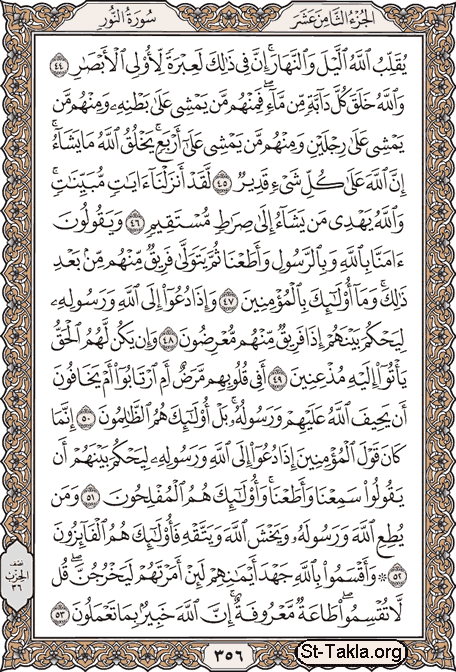 الجزء الثامن عشر
سورة النور
يُقَلِّبُ ٱللَّهُ ٱلَّيْلَ وَٱلنَّهَارَ ۚ إِنَّ فِى ذَٰلِكَ لَعِبْرَةً لِّأُو۟لِى ٱلْأَبْصَٰرِ ٤٤
وَٱللَّهُ خَلَقَ كُلَّ دَآبَّةٍ مِّن مَّآءٍ ۖ فَمِنْهُم مَّن يَمْشِى عَلَىٰ بَطْنِهِۦ وَمِنْهُم مَّن
يَمْشِى عَلَىٰ رِجْلَيْنِ وَمِنْهُم مَّن يَمْشِى عَلَىٰٓ أَرْبَعٍ ۚ يَخْلُقُ ٱللَّهُ مَا يَشَآءُ ۚ
إِنَّ ٱللَّهَ عَلَىٰ كُلِّ شَىْءٍ قَدِيرٌ ٤٥ لَّقَدْ أَنزَلْنَآ ءَايَٰتٍ مُّبَيِّنَٰتٍ ۚ
وَٱللَّهُ يَهْدِى مَن يَشَآءُ إِلَىٰ صِرَٰطٍ مُّسْتَقِيمٍ ٤٦ وَيَقُولُونَ
ءَامَنَّا بِٱللَّهِ وَبِٱلرَّسُولِ وَأَطَعْنَا ثُمَّ يَتَوَلَّىٰ فَرِيقٌ مِّنْهُم مِّنۢ بَعْدِ
ذَٰلِكَ ۚ وَمَآ أُو۟لَٰٓئِكَ بِٱلْمُؤْمِنِينَ ٤٧ وَإِذَا دُعُوٓا۟ إِلَى ٱللَّهِ وَرَسُولِهِۦ
لِيَحْكُمَ بَيْنَهُمْ إِذَا فَرِيقٌ مِّنْهُم مُّعْرِضُونَ ٤٨ وَإِن يَكُن لَّهُمُ ٱلْحَقُّ
يَأْتُوٓا۟ إِلَيْهِ مُذْعِنِينَ ٤٩ أَفِى قُلُوبِهِم مَّرَضٌ أَمِ ٱرْتَابُوٓا۟ أَمْ يَخَافُونَ
أَن يَحِيفَ ٱللَّهُ عَلَيْهِمْ وَرَسُولُهُۥ ۚ بَلْ أُو۟لَٰٓئِكَ هُمُ ٱلظَّٰلِمُونَ ٥٠ إِنَّمَا
كَانَ قَوْلَ ٱلْمُؤْمِنِينَ إِذَا دُعُوٓا۟ إِلَى ٱللَّهِ وَرَسُولِهِۦ لِيَحْكُمَ بَيْنَهُمْ أَن
يَقُولُوا۟ سَمِعْنَا وَأَطَعْنَا ۚ وَأُو۟لَٰٓئِكَ هُمُ ٱلْمُفْلِحُونَ ٥١ وَمَن
يُطِعِ ٱللَّهَ وَرَسُولَهُۥ وَيَخْشَ ٱللَّهَ وَيَتَّقْهِ فَأُو۟لَٰٓئِكَ هُمُ ٱلْفَآئِزُونَ
٥٢ ۞ وَأَقْسَمُوا۟ بِٱللَّهِ جَهْدَ أَيْمَٰنِهِمْ لَئِنْ أَمَرْتَهُمْ لَيَخْرُجُنَّ ۖ قُل
لَّا تُقْسِمُوا۟ ۖ طَاعَةٌ مَّعْرُوفَةٌ ۚ إِنَّ ٱللَّهَ خَبِيرٌۢ بِمَا تَعْمَلُونَ ٥٣
نصف
الحزب
٣٦
٣٥٦
St-Takla.org